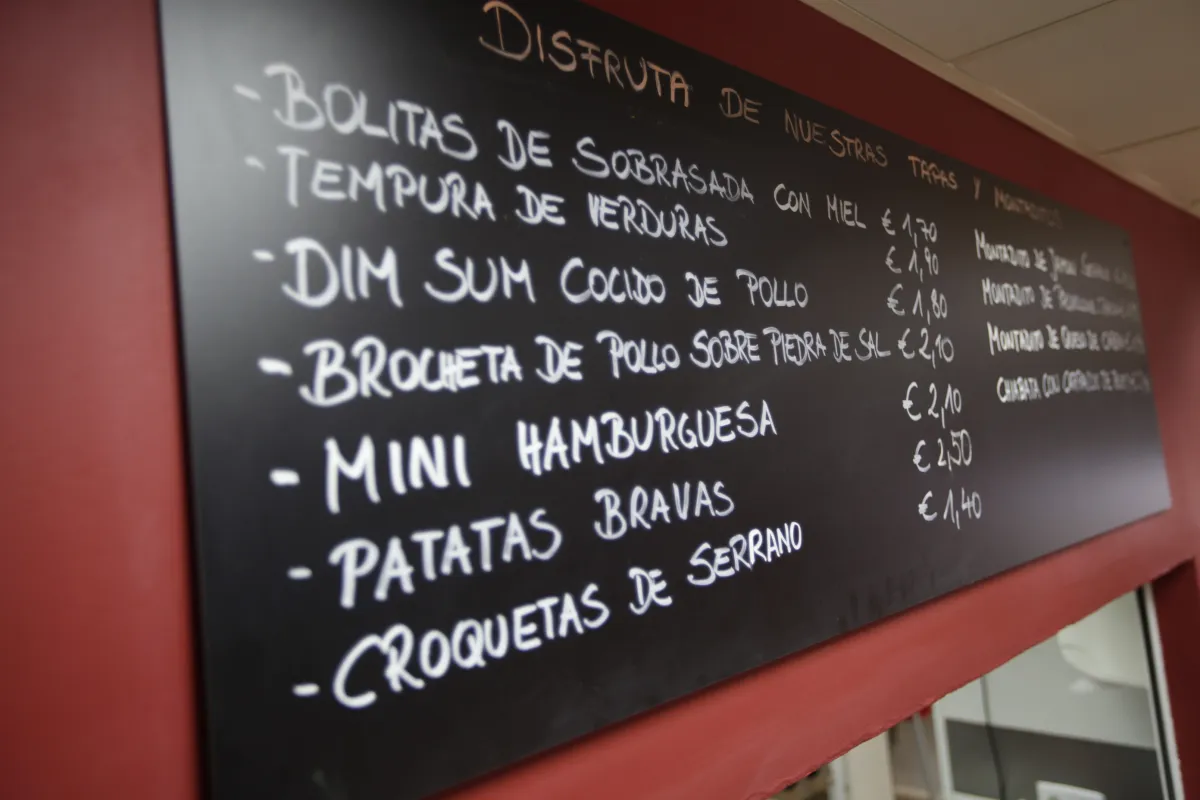 DISFRUTA DE NUESTRAS TAPAS Y MONTADITOS
- BOLITAS DE SOBRASADA CON MIEL € 1,70
- TEMPURA DE VERDURAS € 1,90
- DIM SUM COCIDO DE POLLO € 1,80
- BROCHETA DE POLLO SOBRE PIEDRA DE SAL € 2,10
- MINI HAMBURGUESA € 2,10
- PATATAS BRAVAS € 2,50
- CROQUETAS DE SERRANO € 1,40
MONTADITO DE JAMON
MONTADITO DE
MONTADITO DE QUESO DE CABRA
CHIABATA CON CARPACCIO DE